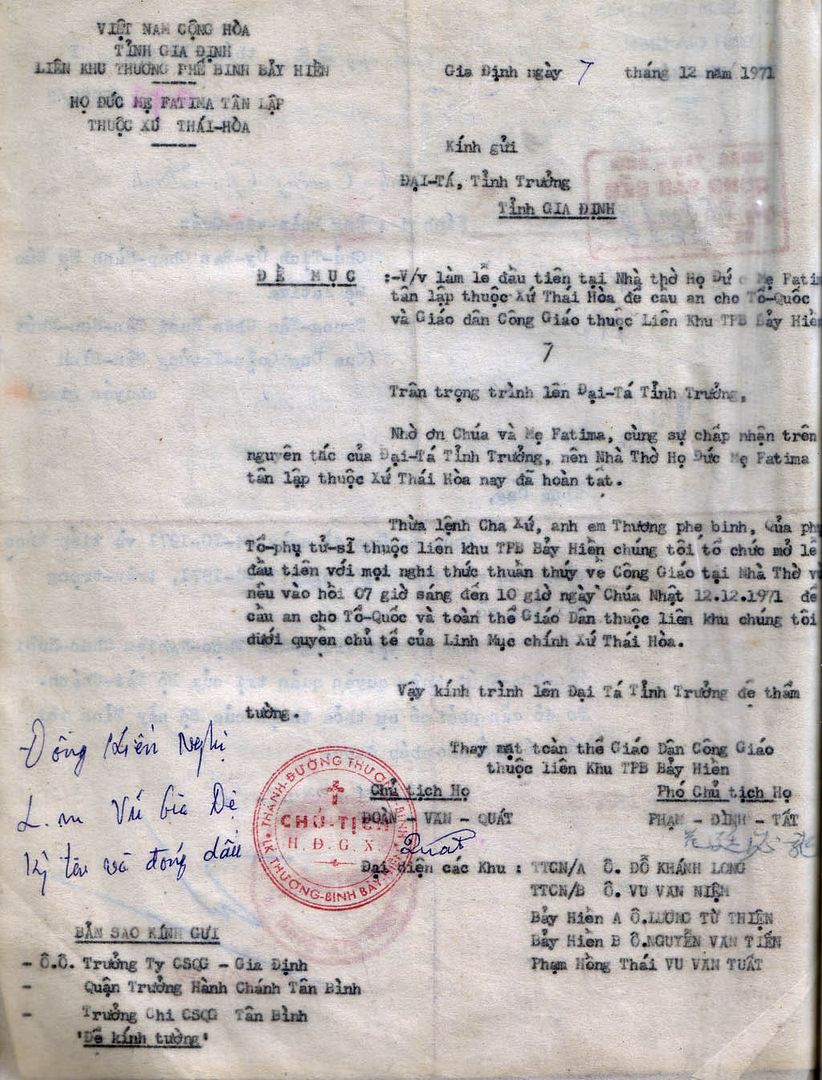 VIỆT NAM CỘNG HÒA
TỈNH GIA ĐỊNH
LIÊN KHU THƯƠNG PHẾ BINH BẢY HIỀN
HỌ ĐỨC MẸ FATIMA TÂN LẬP
THUỘC XỨ THÁI-HÒA
Gia Định ngày 7 tháng 12 năm 1971
Kính gửi
ĐẠI-TÁ, Tỉnh Trưởng
Tỉnh GIA ĐỊNH
ĐỀ MỤC :-V/v làm lễ đầu tiên tại Nhà thờ Họ Đức Mẹ Fatim
tân lập thuộc Xứ Thái Hòa để cầu an cho Tổ-Quốc
và Giáo dân Công Giáo thuộc Liên Khu TPB Bảy Hiền
7
Trân trọng trình lên Đại-Tá Tỉnh Trưởng,
Nhờ ơn Chúa và Mẹ Fatima, cùng sự chấp nhận trên
nguyên tắc của Đại-Tá Tỉnh Trưởng, nên Nhà Thờ Họ Đức Mẹ Fatima
tân lập thuộc Xứ Thái Hòa nay đã hoàn tất.
Thừa lệnh Cha Xứ, anh em Thương phế binh, Quả phụ
Tổ-phụ tử-sĩ thuộc liên khu TPB Bảy Hiền chúng tôi tổ chức mở lễ
đầu tiên với mọi nghi thức thuần thúy về Công Giáo tại Nhà Thờ
nêu vào hồi 07 giờ sáng đến 10 giờ ngày Chúa Nhật 12.12.1971 để
cầu an cho Tổ-Quốc và toàn thể Giáo Dân thuộc liên khu chúng tôi
dưới quyền chủ tế của Linh Mục chính Xứ Thái Hòa.
Vậy kính trình lên Đại Tá Tỉnh Trưởng để thẩm
tường.
Đồng kiến nghị
L.m Vũ Gia Đệ
ký tên và đóng dấu
Thay mặt toàn thể Giáo Dân Công Giáo
thuộc liên Khu TPB Bảy Hiền
Chủ tịch Họ
ĐOÀN - VĂN - QUÁT
Quát
Phó Chủ tịch Họ
PHẠM - ĐÌNH - TẤT
CHỦ-TỊCH
H.Đ.G.X.
Đại diện các Khu : TTCN/A Ô. ĐỖ KHÁNH LONG
TTCN/B Ô. VU VĂN NIỆM
Bảy Hiền A Ô.LƯƠNG TỪ THIỆN
Bảy Hiền B Ô.NGUYỄN VĂN TIẾN
Phạm Hồng Thái VU VĂN TUẤT
BẢN SAO KÍNH GỬI
- Ô.Ô. Trưởng Ty CSQG - Gia Định
- Quận Trưởng Hành Chánh Tân Bình
- Trưởng Chi CSQG Tân Bình
"Để kính tường"